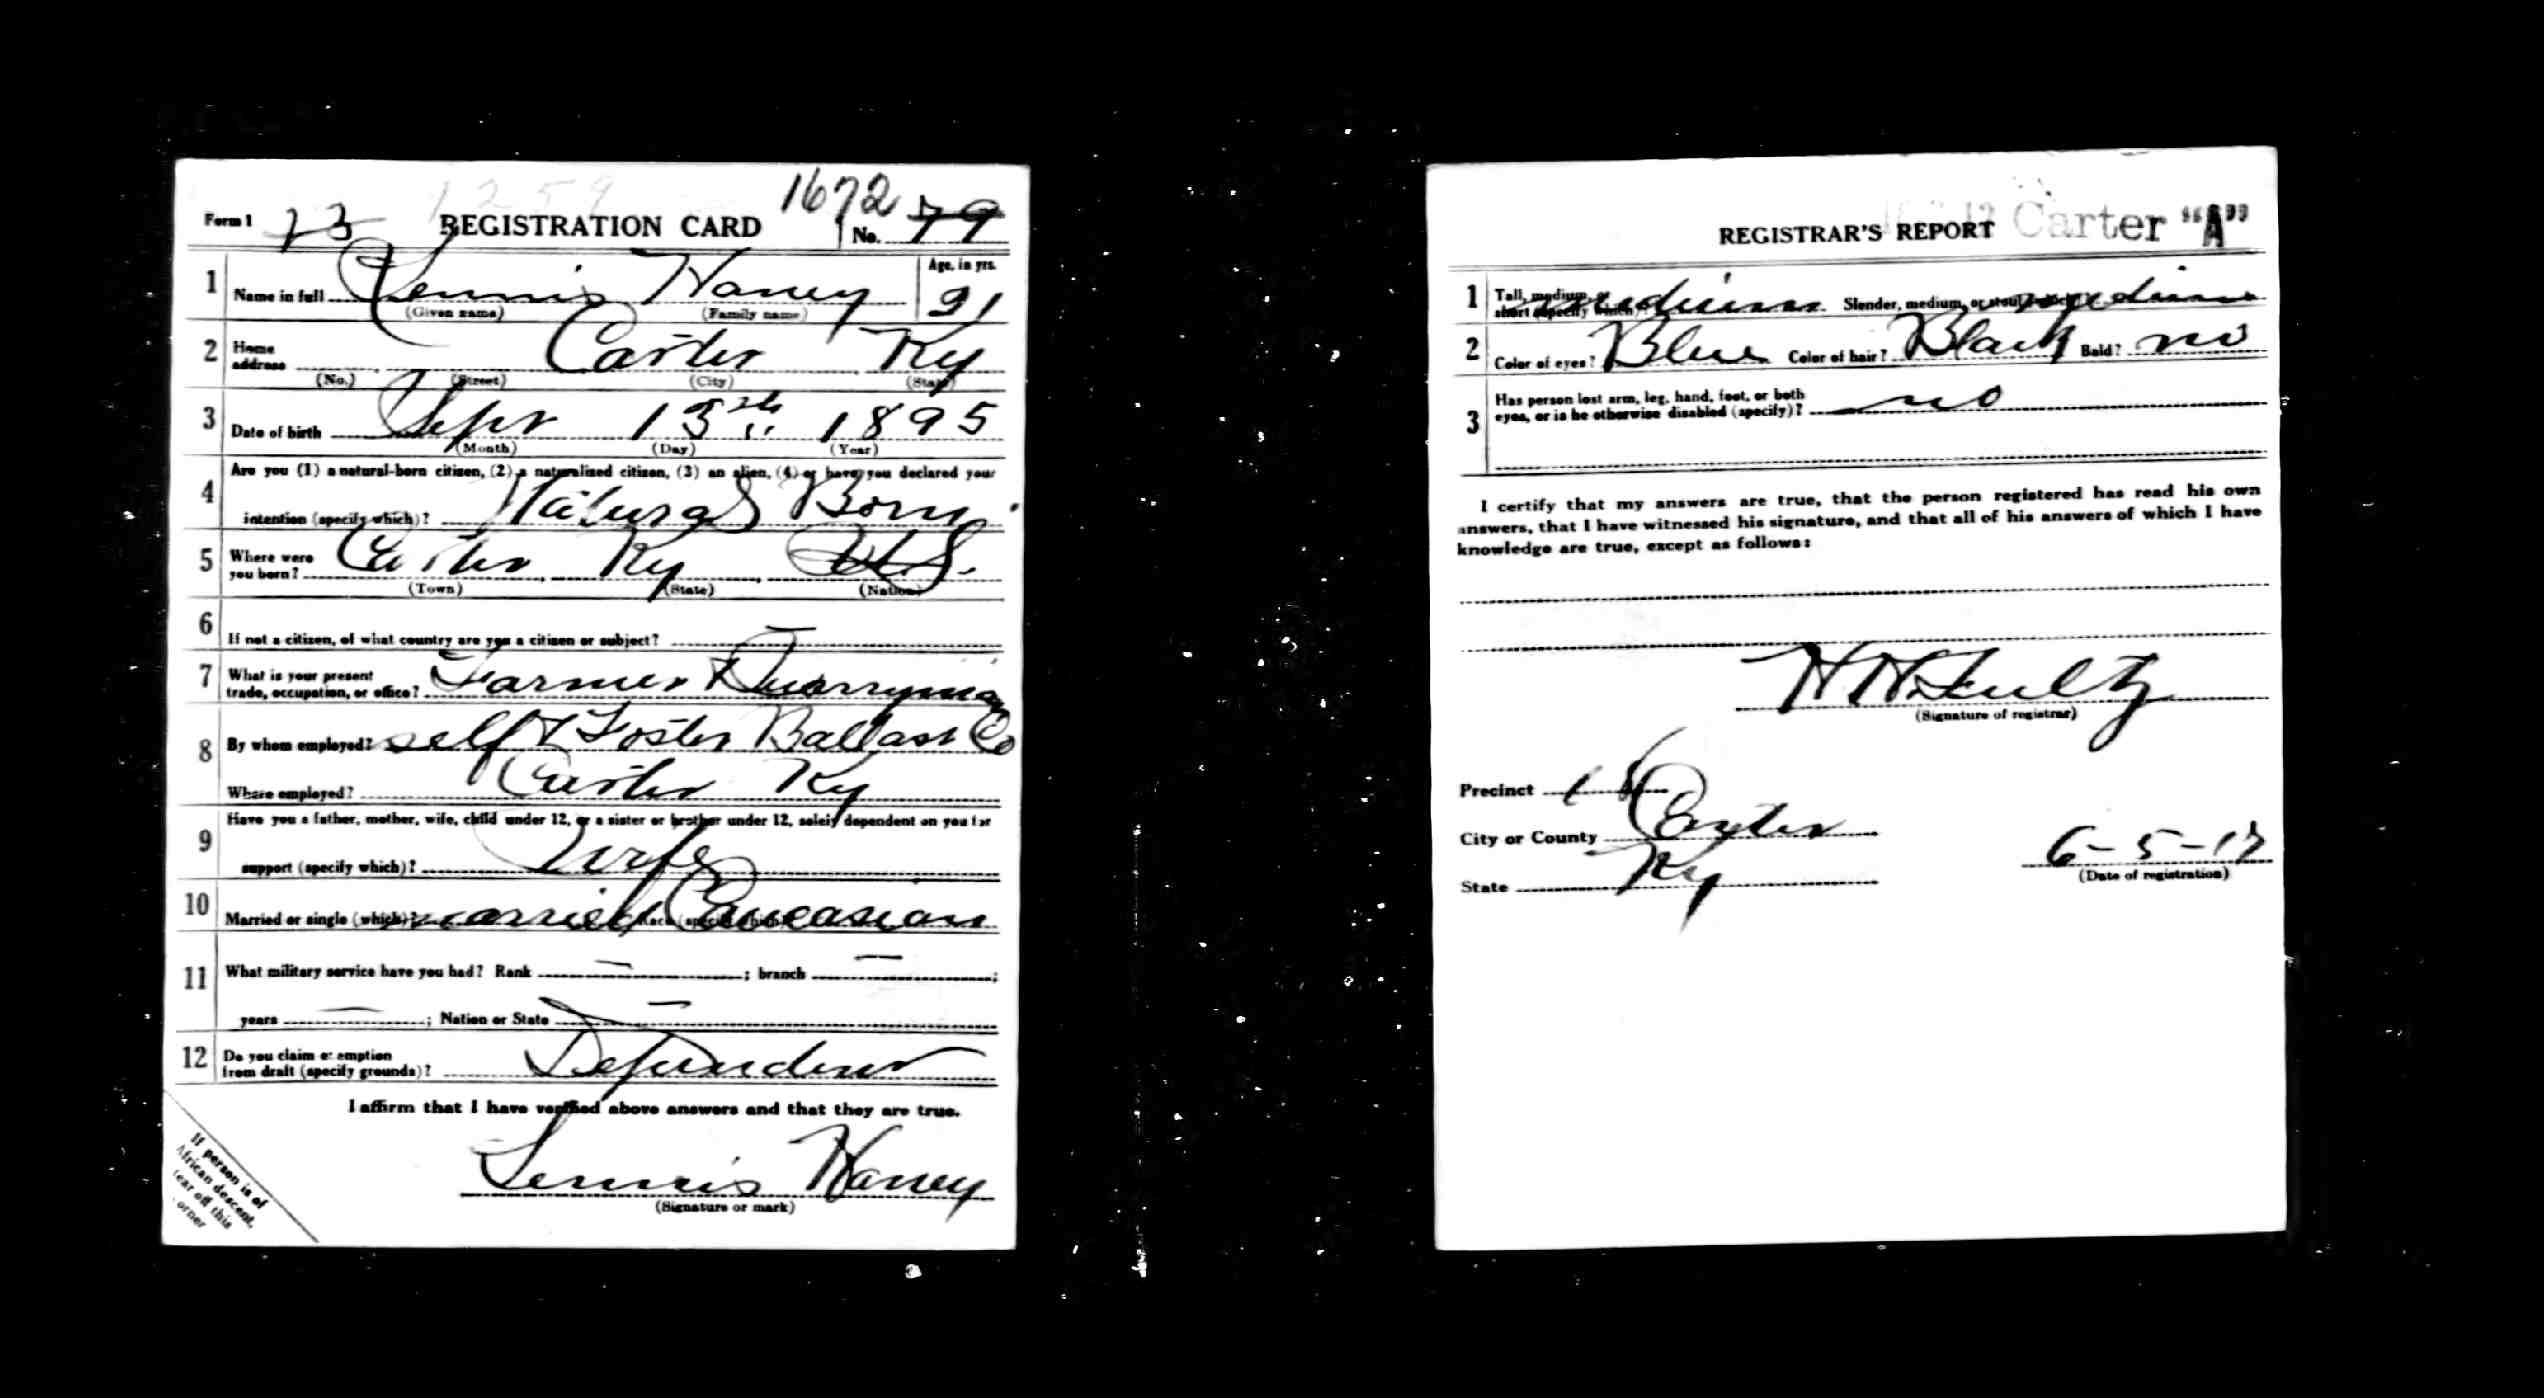 1259
1672
Form 1 23 REGISTRATION CARD No. 79
1 Name in full Lennis Haney Age, in yrs. 21
(Given name) (Family name)
2 Home address Carter Ky
(No.) (Street) (City) (State)
3 Date of birth Sepr 13th 1895
(Month) (Day) (Year)
4 Are you (1) a natural-born citizen, (2) a naturalized citizen, (3) an alien, (4) or have you declared your
intention (specify which)? Natural Born
5 Where were you born? Carter Ky U.S.
(Town) (State) (Nation)
6 If not a citizen, of what country are you a citizen or subject? —
7 What is your present
trade, occupation, or office? Farmer & Quarryman
8 By whom employed? self & Foster Ballast Co
Where employed? Carter Ky
9 Have you a father, mother, wife, child under 12, or a sister or brother under 12, solely dependent on you for
support (specify which)? Wife
10 Married or single (which)? married Race (specify which)? Caucasian
11 What military service have you had? Rank — ; branch — ;
years — ; Nation or State —
12 Do you claim exemption
from draft (specify grounds)? Dependent
I affirm that I have verified above answers and that they are true.
Lennis Haney
(Signature or mark)
If person is of
African descent,
tear off this
corner
REGISTRAR'S REPORT Carter "A"
1 Tall, medium, or
short (specify which)? medium Slender, medium, or stout (which)? medium
2 Color of eyes? Blue Color of hair? Black Bald? no
3 Has person lost arm, leg, hand, foot, or both
eyes, or is he otherwise disabled (specify)? no
I certify that my answers are true, that the person registered has read his own
answers, that I have witnessed his signature, and that all of his answers of which I have
knowledge are true, except as follows:
H H Fultz
(Signature of registrar)
Precinct 18
City or County Carter
State Ky
6-5-17
(Date of registration)